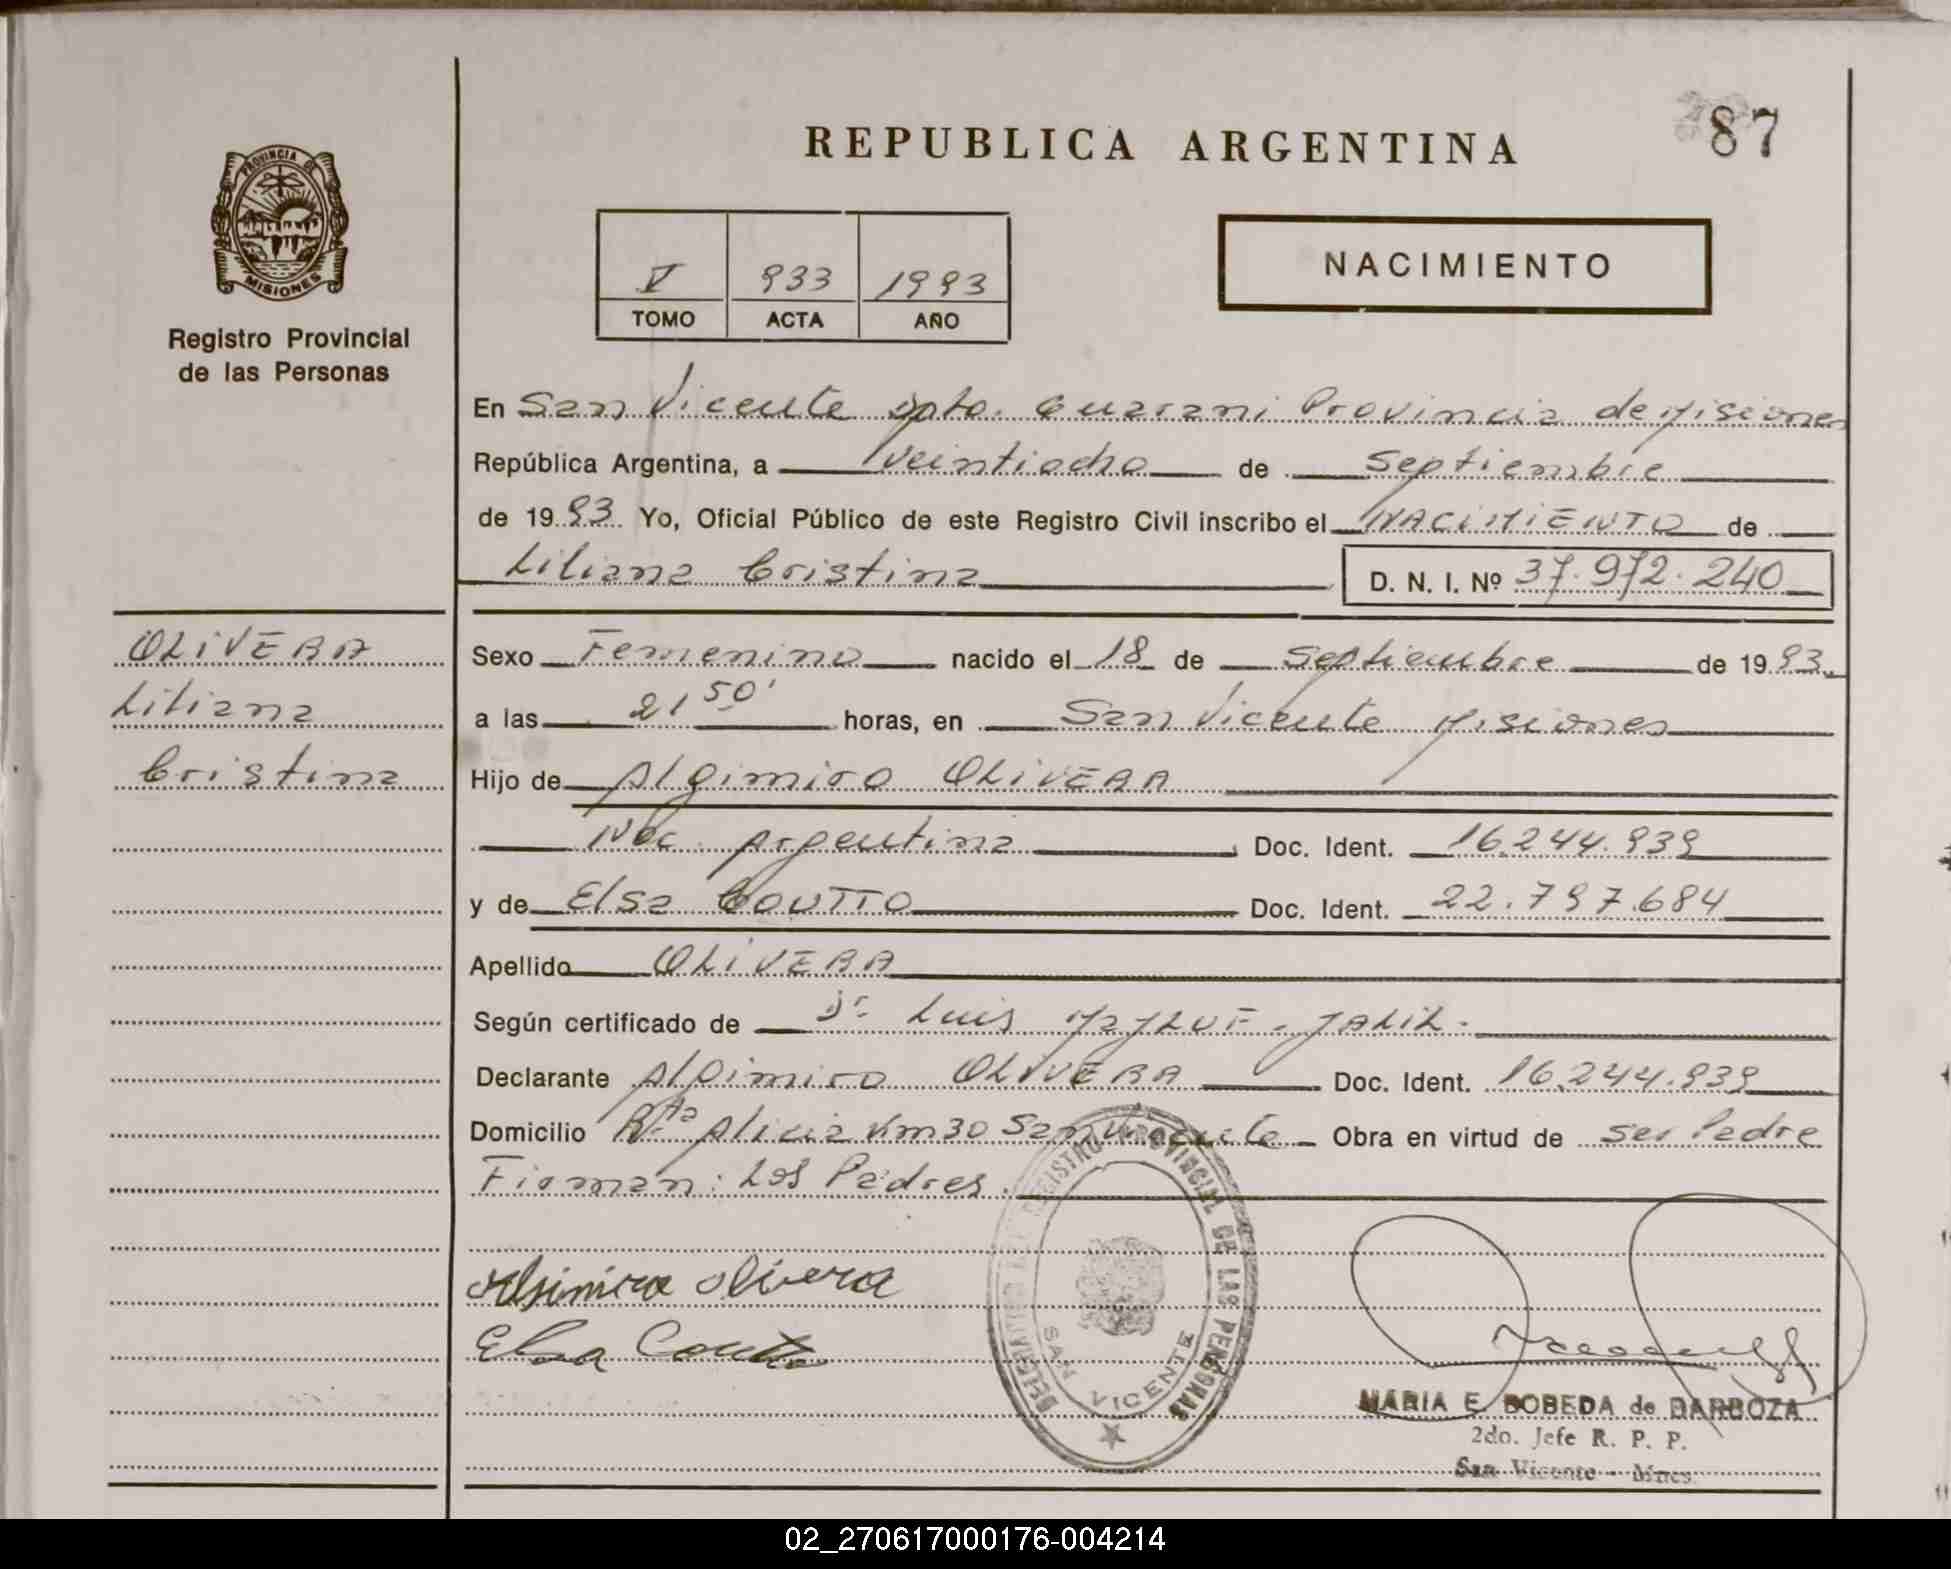 87
REPUBLICA ARGENTINA
PROVINCIA DE
MISIONES
Registro Provincial
de las Personas
V 933 1993
TOMO ACTA AÑO
NACIMIENTO
En San Vicente Dpto. Guarani Provincia de Misiones
República Argentina, a veintiocho de Septiembre
de 1993 Yo, Oficial Público de este Registro Civil inscribo el NACIMIENTO de
Liliana Cristina D. N. I. Nº 37.972.240
OLIVERA
Liliana
Cristina
Sexo Femenino nacido el 18 de Septiembre de 1993
a las 21 50' horas, en San Vicente Misiones
Hijo de Algimiro OLIVERA
Nac. Argentina Doc. Ident. 16.244.939
y de Elsa COUTTO Doc. Ident. 22.797.684
Apellido OLIVERA
Según certificado de Dr. Luis JALIL.
Declarante Algimiro OLIVERA Doc. Ident. 16.244.939
Domicilio Rta Alicia Km 30 San Vicente Obra en virtud de ser Padre
Firman: Los Padres.
Algimiro Olivera
Elsa Coutto
REGISTRO PROVINCIAL DE LAS PERSONAS
SAN VICENTE
MARIA E. BOBEDA de BARBOZA
2do. Jefe R. P. P.
San Vicente - Mnes.
02_270617000176-004214